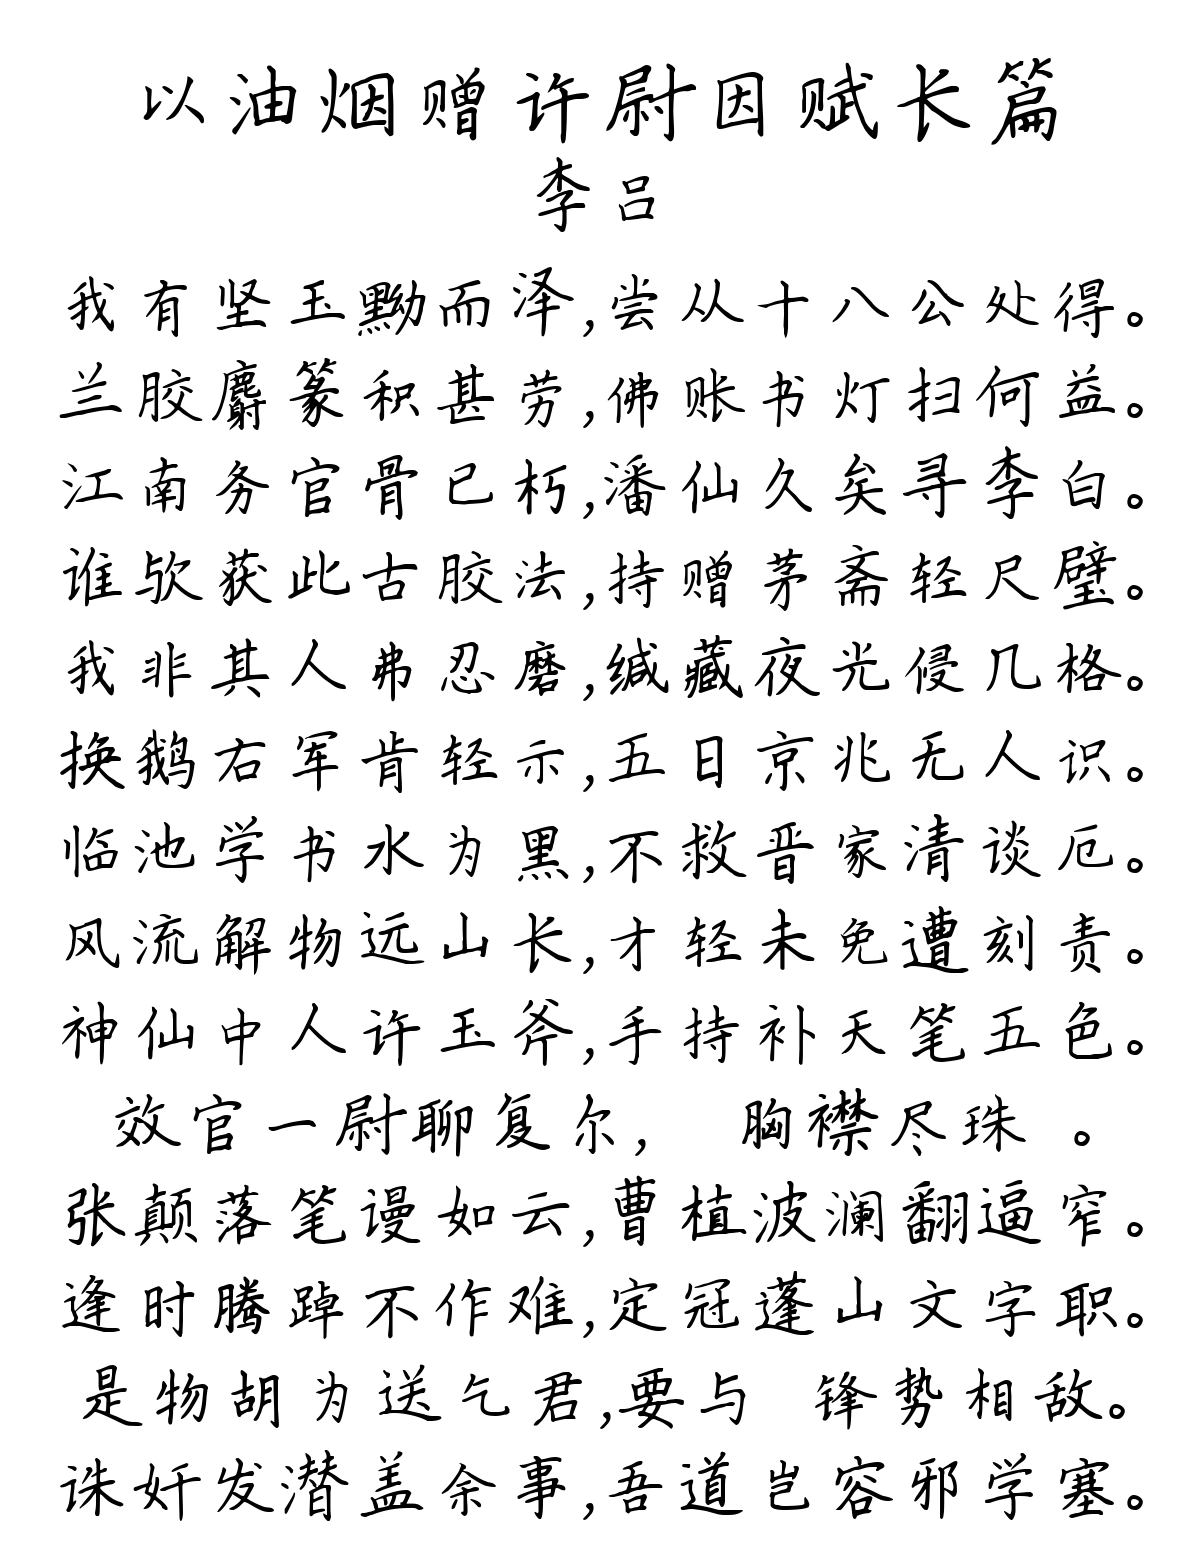 以油烟赠许尉因赋长篇
李吕
我有坚玉黝而泽,尝从十八公处得。
兰胶麝篆积甚劳,佛账书灯扫何益。
江南务官骨已朽,潘仙久矣寻李白。
谁欤获此古胶法,持赠茅斋轻尺璧。
我非其人弗忍磨,缄藏夜光侵几格。
换鹅右军肯轻示,五日京兆无人识。
临池学书水为黑,不救晋家清谈厄。
风流解物远山长,才轻未免遭刻责。
神仙中人许玉斧,手持补天笔五色。
效官一尉聊复尔, 胸襟尽珠 。
张颠落笔谩如云,曹植波澜翻逼窄。
逢时腾踔不作难,定冠蓬山文字职。
是物胡为送乞君,要与 锋势相敌。
诛奸发潜盖余事,吾道岂容邪学塞。